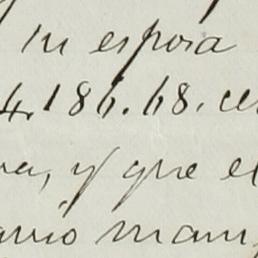 su esposa
4.186.68. ce
ra, y que el
ario man